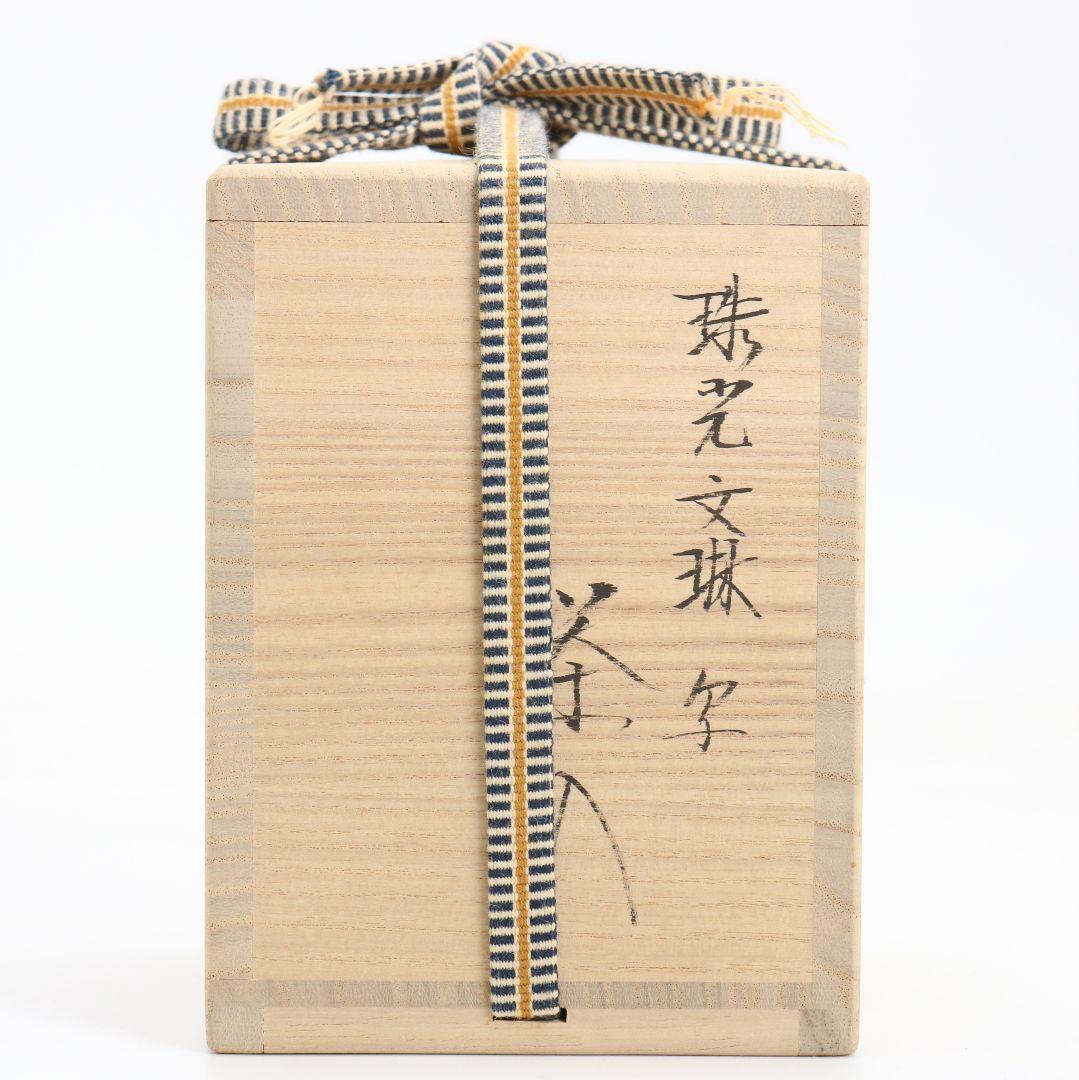 珠光文琳 写
茶入